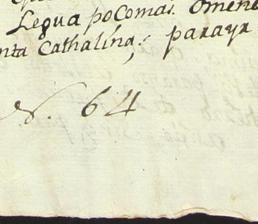 Legua po Comas. Omeno
nta Cathalina; parayr
N. 64